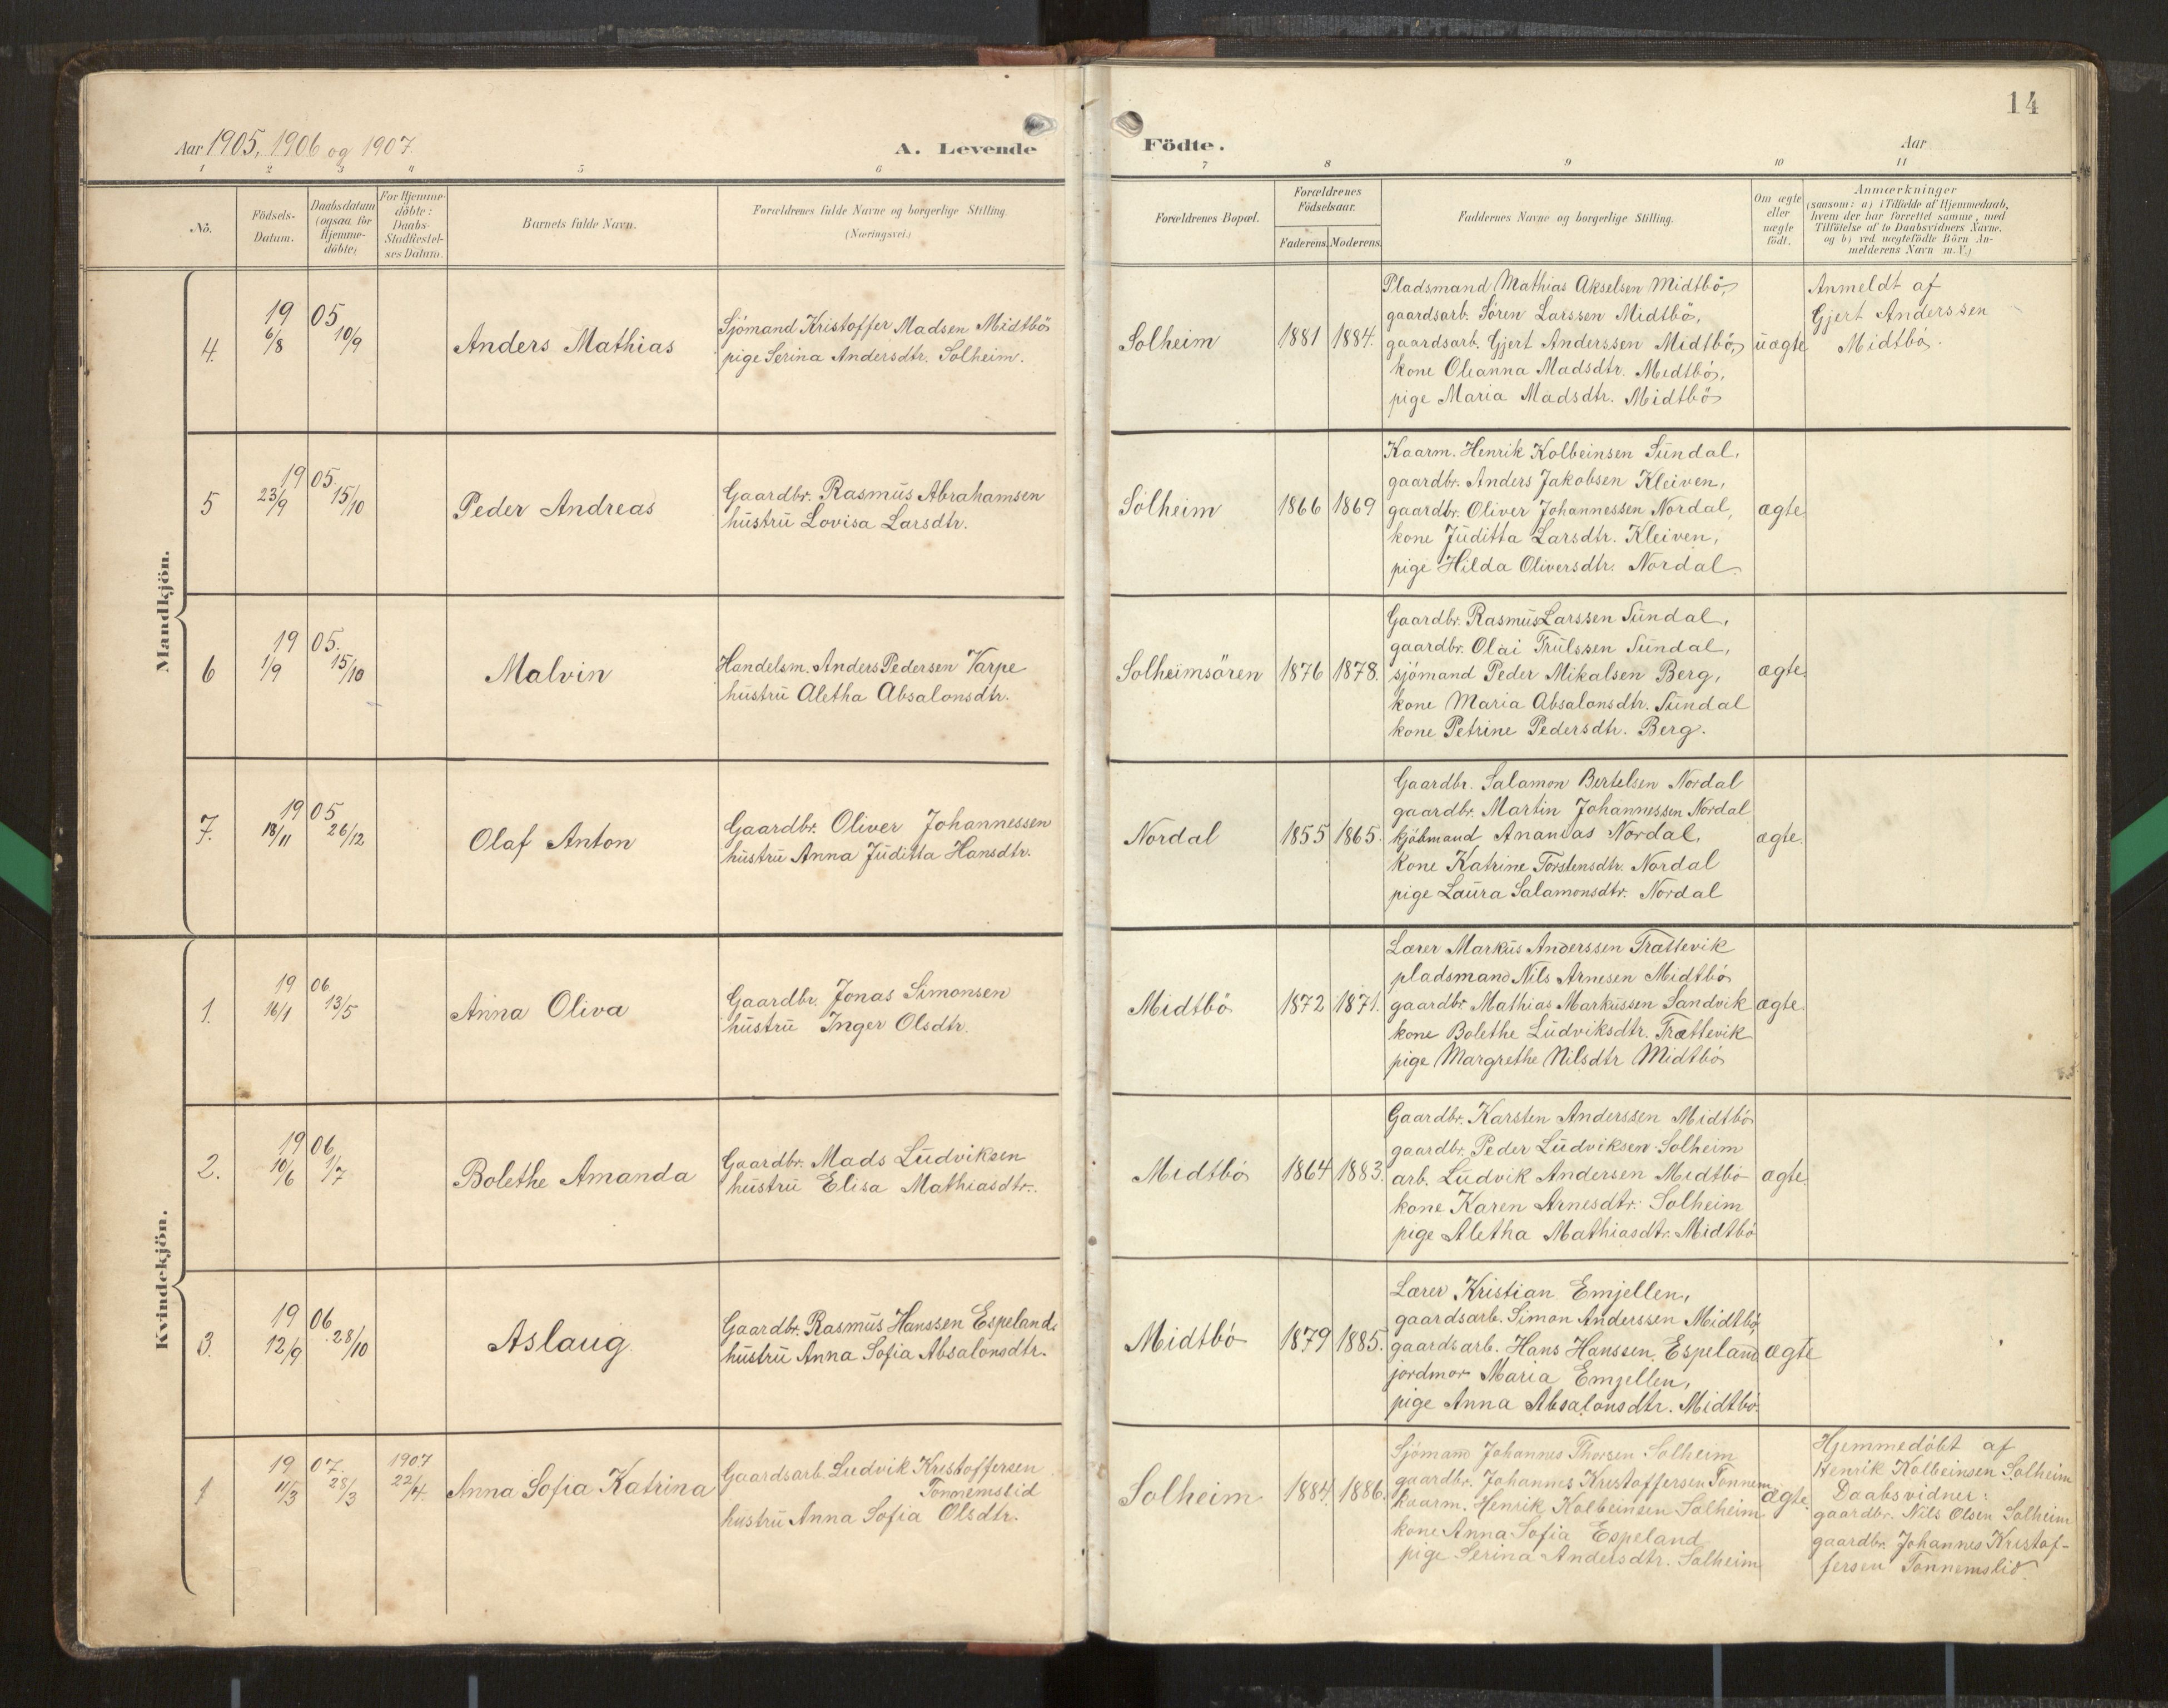 14
Aar 1905, 1906 og 1907.
A. Levende
Födte.
Aar
1 2 3 4 5 6
7 8 9 10 11
No.
Födsels-
Datum.
Daabsdatum
(ogsaa for
Hjemme-
döbte)
For Hjemme-
döbte:
Daabs-
Stadfæstel-
ses Datum.
Barnets fulde Navn.
Forældrenes fulde Navne og borgerlige Stilling
(Næringsvei.)
Forældrenes Bopæl.
Forældrenes
Födselsaar.
Faderens.
Moderens.
Faddernes Navne og borgerlige Stilling.
Om ægte
eller
uægte
födt.
Anmærkninger
(saasom: a) i Tilfælde af Hjemmedaab,
hvem der har forrettet samme, med
Tilföielse af to Daabsvidners Navne.
og b) ved uægtefödte Börn An-
melderens Navn m.V.)
Mandkjön.
4.
19 05
6/8 10/9
Anders Mathias
Sjömand Kristoffer Madsen Midtbö
pige Serina Andersdtr. Solheim.
Solheim
1881
1884.
Pladsmand Mathias Akselsen Midtbö,
gaardsarb. Sören Larssen Midtbö,
gaardsarb. Gjert Anderssen Midtbö,
kone Oleanna Madsdtr. Midtbö,
pige Maria Madsdtr. Midtbö
uægte
Anmeldt af
Gjert Anderssen
Midtbö.
5
19 05.
23/9 15/10
Peder Andreas
Gaardbr. Rasmus Abrahamsen
hustru Lovisa Larsdtr.
Solheim
1866
1869
Kaarm. Henrik Kolbeinsen Sundal,
gaardbr. Anders Jakobsen Kleiven,
gaardbr. Oliver Johannessen Nordal,
kone Juditta Larsdtr. Kleiven,
pige Hilda Oliversdtr. Nordal.
ægte
6
19 05.
1/9 15/10
Malvin
Handelsm. Anders Pedersen Varpe
hustru Aletha Absalonsdtr.
Solheimsören
1876
1878.
Gaardbr. Rasmus Larssen Sundal,
gaardbr. Olai Trulssen Sundal,
sjömand Peder Mikalsen Berg,
kone Maria Absalonsdtr. Sundal
kone Petrine Pedersdtr. Berg.
ægte
7.
19 05
18/11 26/12
Olaf Anton
Gaardbr. Oliver Johannessen
hustru Anna Juditta Hansdtr.
Nordal
1855
1865.
Gaardbr. Salamon Bertelsen Nordal
gaardbr. Martin Johannessen Nordal
kjöbmand Ananias Nordal,
kone Katrine Torstensdtr. Nordal
pige Laura Salamonsdtr. Nordal
ægte.
Kvindekjön.
1.
19 06
16/1 13/5
Anna Oliva
Gaardbr. Jonas Simonsen
hustru Inger Olsdtr.
Midtbö
1872
1871.
Lærer Markus Anderssen Trættevik
pladsmand Nils Arnesen Midtbö
gaardbr. Mathias Markussen Sandvik
kone Bolethe Ludviksdtr. Trættevik
pige Margrethe Nilsdtr Midtbö
ægte
2.
19 06
10/6 1/7
Bolethe Amanda
Gaardbr. Mads Ludviksen
hustru Elisa Mathiasdtr.
Midtbö
1864
1883.
Gaardbr. Karsten Anderssen Midtbö
gaardbr. Peder Ludviksen Solheim
arb. Ludvik Andersen Midtbö
kone Karen Arnesdtr. Solheim
pige Aletha Mathiasdtr. Midtbö
ægte.
3.
19 06
12/9 28/10
Aslaug.
Gaardbr. Rasmus Hanssen Espeland,
hustru Anna Sofia Absalonsdtr.
Midtbö
1879
1885.
Lærer Kristian Emjellen,
gaardsarb. Simon Anderssen Midtbö,
gaardsarb. Hans Hanssen Espeland
jordmor Maria Emjellen,
pige Anna Absalonsdtr. Midtbö.
ægte
1
19 07.
11/3 28/3
1907
22/4.
Anna Sofia Katrina
Gaardsarb. Ludvik Kristoffersen
Tonnemslid
hustru Anna Sofia Olsdtr.
Solheim
1884.
1886.
Sjömand Johannes Thorsen Solheim
gaardbr. Johannes Kristoffersen Tonnem.
kaarm. Henrik Kolbeinsen Solheim
kone Anna Sofia Espeland
pige Serina Andersdtr. Solheim
ægte.
Hjemmedöbt af
Henrik Kolbeinsen Solheim
Daabsvidner:
gaardbr. Nils Olsen Solheim
gaardbr. Johannes Kristof-
fersen Tonnemslid.